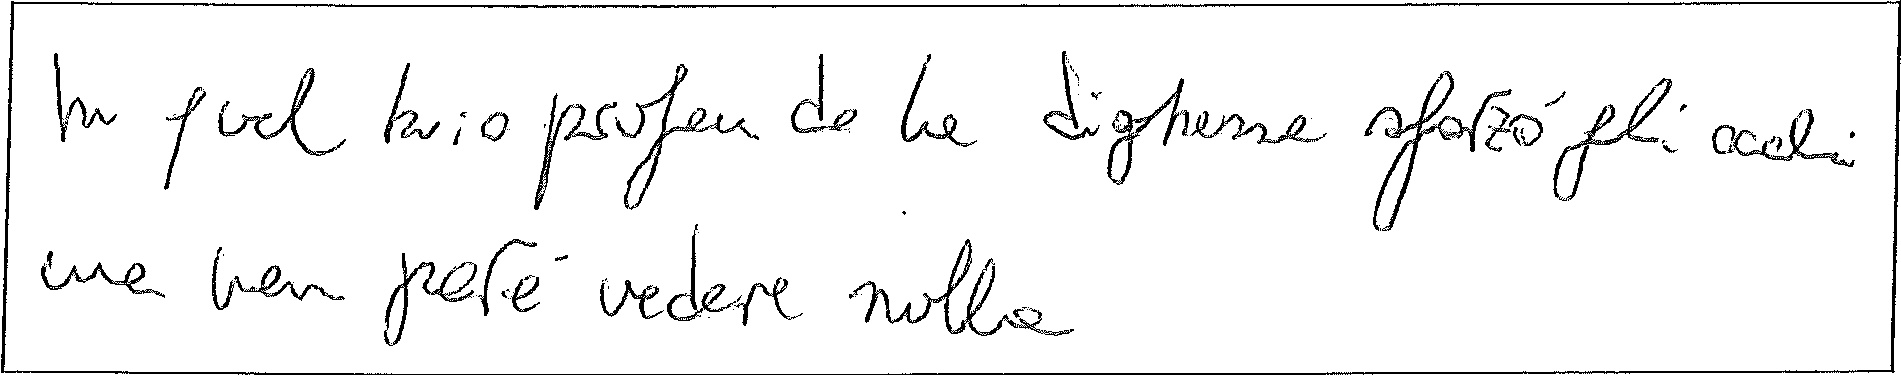 In quel buio profondo la sforzò gli occhi
ma non poté vedere nulla